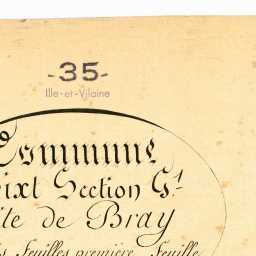 -35-
Ille-et-Vilaine
Commune
ixt Section G.1
te de Bray
Feuilles première Feuille